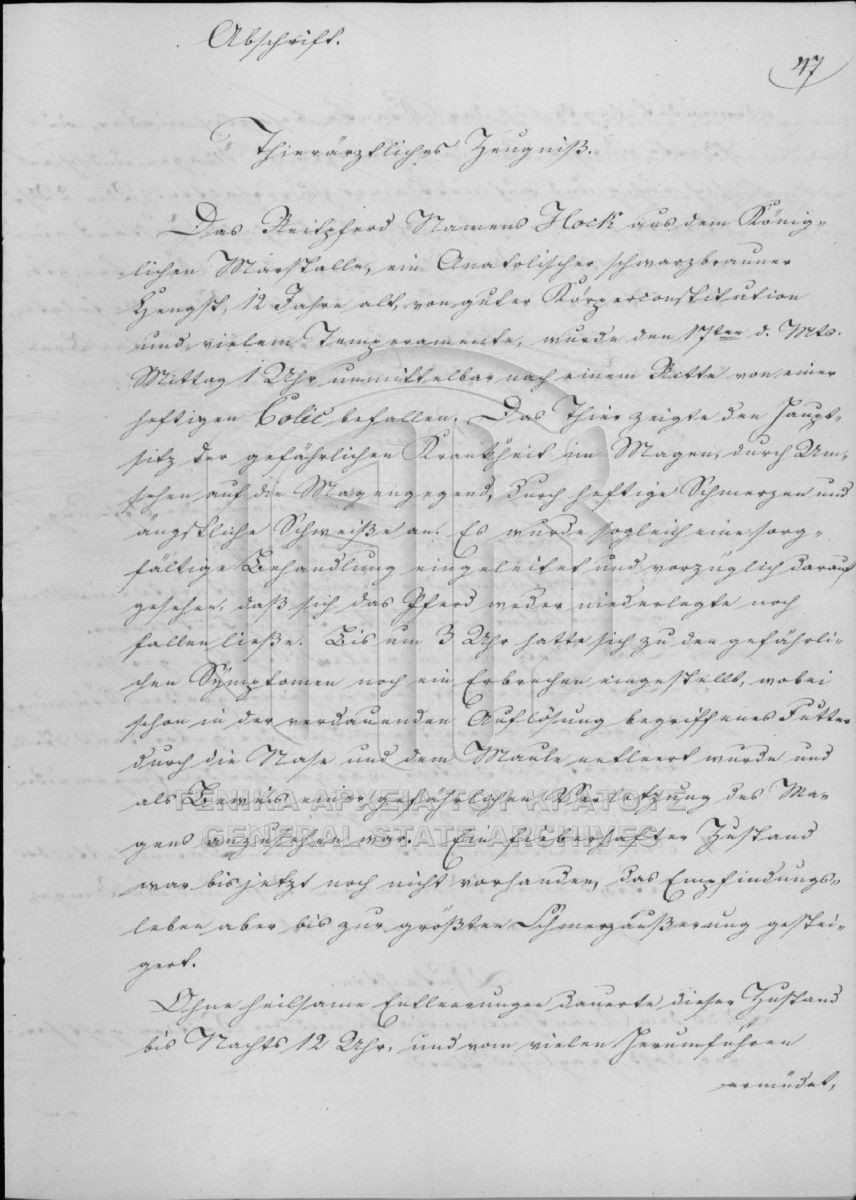 Abschrift.
47
Thierärztliches Zeugniß.
Das Reitpferd Namens Hock aus dem König-
lichen Marstalle, ein Anatolischer schwarzbrauner
Hengst, 12 Jahre alt, von guter Körperconstitution
und vielem Temperamente, wurde den 17ten d. Mts.
Mittag 1 Uhr unmittelbar nach einem Ritte von einer
heftigen Colic befallen. Das Thier zeigte den Haupt-
sitz der gefährlichen Krankheit im Magen, durch Um-
sehen auf die Magengegend, durch heftige Schmerzen und
ängstliche Schweiße an. Es wurde sogleich eine sorg-
fältige Behandlung eingeleitet und vorzüglich darauf
gesehen, daß sich das Pferd weder niederlegte noch
fallen ließe. Bis um 3 Uhr hatte sich zu den gefährli-
chen Symptomen noch ein Erbrechen eingestellt, wobei
schon in der verdauenden Auflösung begriffenes Futter
durch die Nase und dem Maule entleert wurde und
als Beweis einer gefährlichen Verletzung des Ma-
gens anzusehen war. Ein fieberhafter Zustand
war bis jetzt noch nicht vorhanden, das Empfindungs-
leben aber bis zur größten Schmerzäußerung gestei-
gert.
Ohne heilsame Entleerungen dauerte dieser Zustand
bis Nachts 12 Uhr, und vom vielen Herumführen
ermüdet,
ΓΕΝΙΚΑ ΑΡΧΕΙΑ ΤΟΥ ΚΡΑΤΟΥΣ
GENERAL STATE ARCHIVES